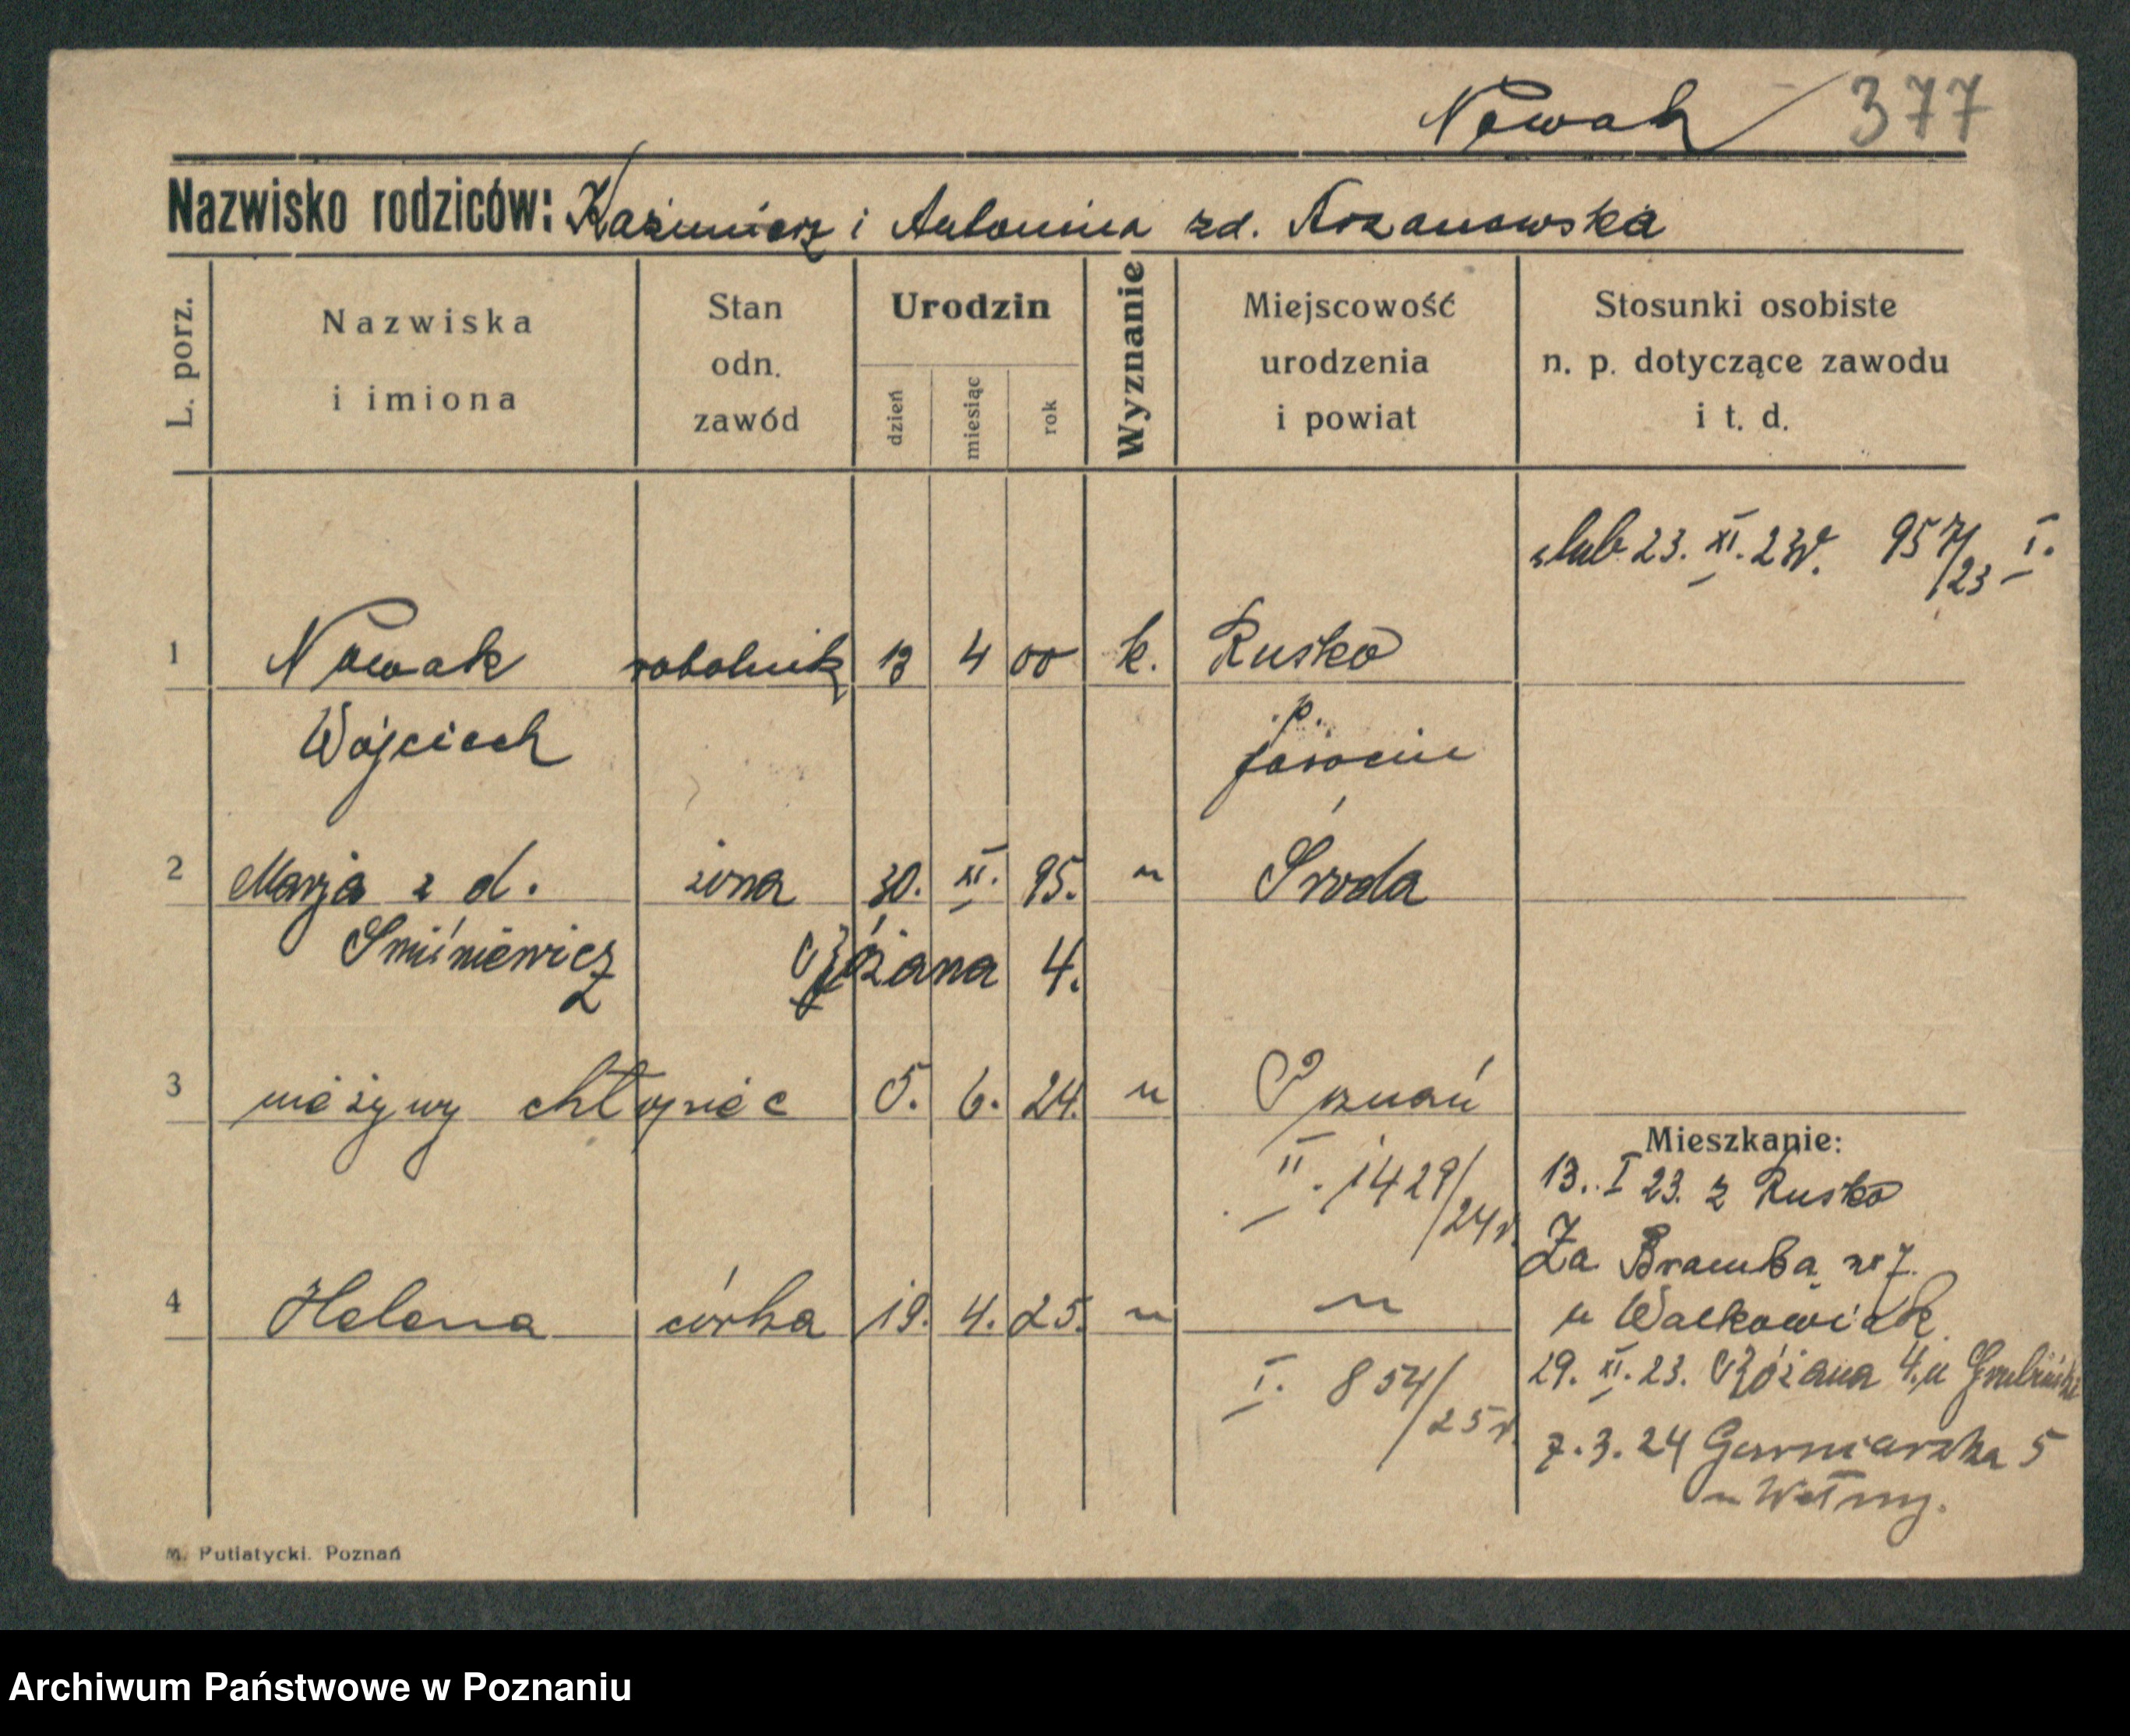 Nowak 377
Nazwisko rodziców: Kazimierz i Antonina zd.
L. porz.
Nazwiska i imiona
Stan odn. zawód
Urodzin
dzień miesiąc rok
Wyznanie
Miejscowość urodzenia i powiat
Stosunki osobiste n. p. dotyczące zawodu i t. d.
slub 23. XI. 23r. 957/23 I.
1 Nowak robotnik 13 4 00 k. Rusko
Wojciech p. Jarocin
2 Marja z d. żona 30. XI. 95. " Środa
Smiśniewicz Różana 4.
3 nieżywy chłopiec 5. 6. 24. " Poznań
II. 1429/24r.
Mieszkanie:
13. I 23. z Rusko
Za Bramką nr 7.
u Walkowiak
4 Helena córka 19. 4. 25. " "
I. 854/25r.
29. XI. 23. Różana 4. u
7. 3. 24 Garncarska 5
u
M. Putiatycki. Poznań
Archiwum Państwowe w Poznaniu